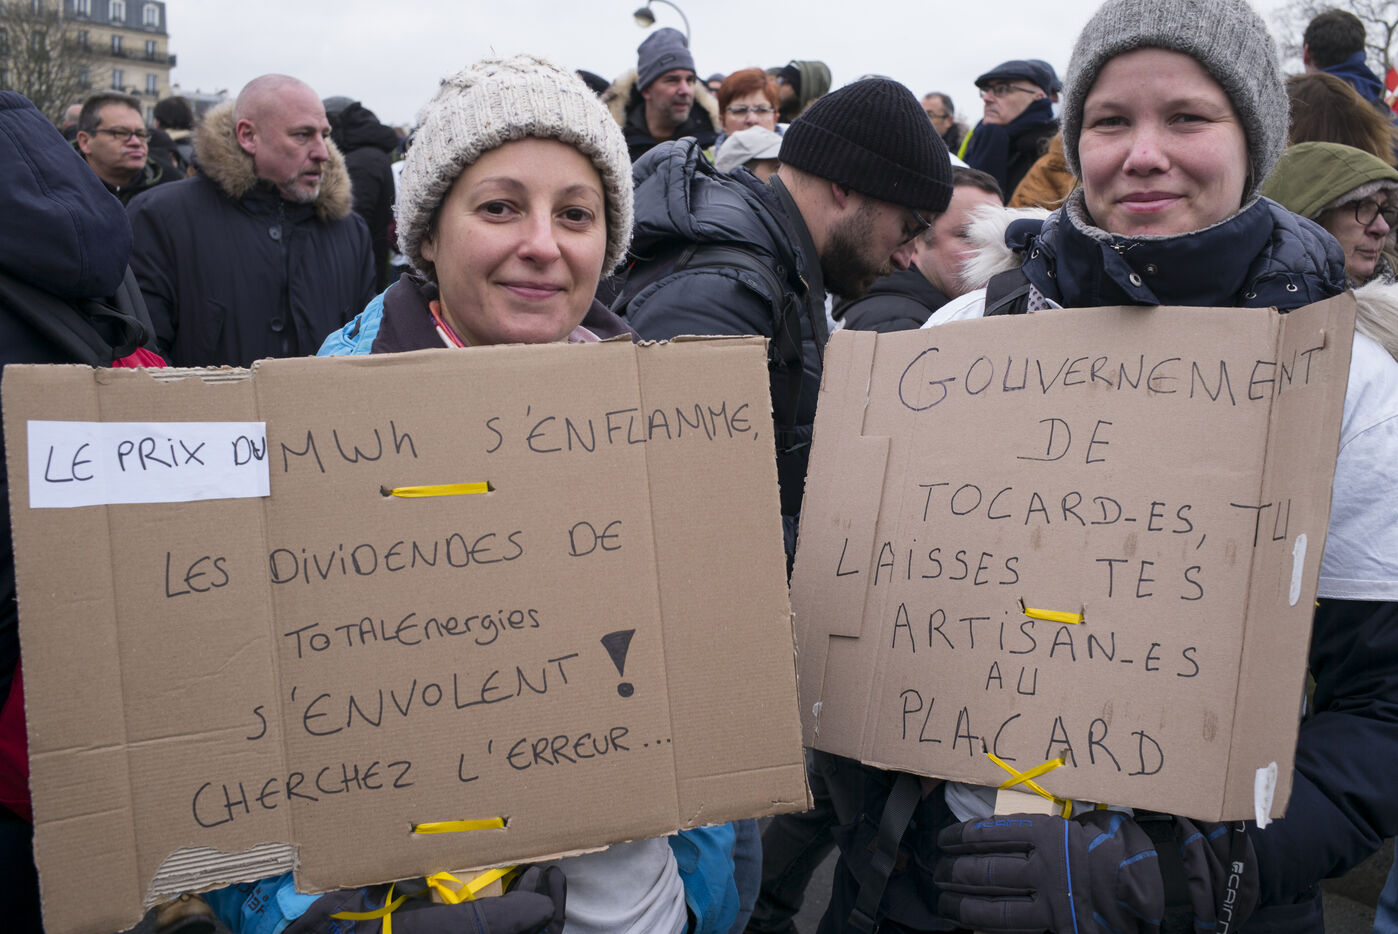 LE PRIX DU MWh S'ENFLAMME,
LES DIVIDENDES DE
TOTALEnergies
S'ENVOLENT !
CHERCHEZ L'ERREUR...
GOUVERNEMENT
DE
TOCARD-ES, TU
LAISSES TES
ARTISAN-ES
AU
PLACARD
CAIRN
CAIRN